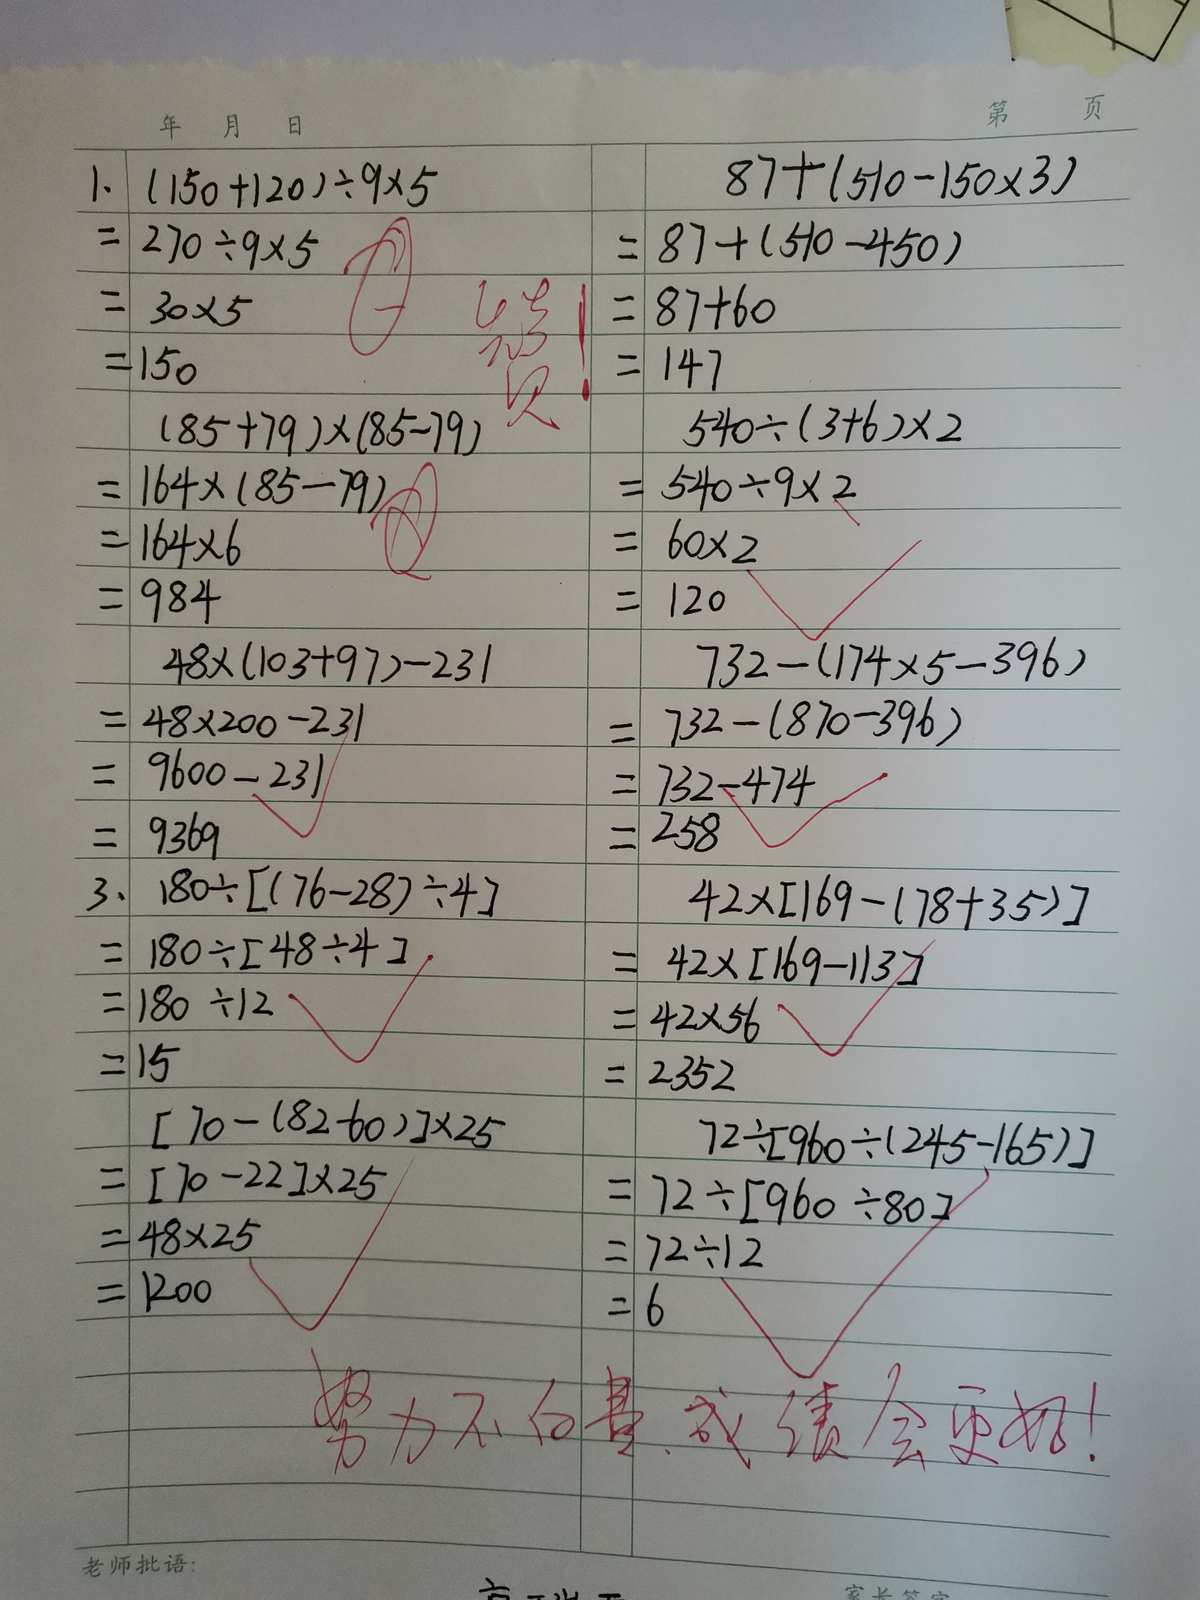 年 月 日
第 页
1. (150+120)÷9×5
=270÷9×5
=30×5
=150
(85+79)×(85-79)
=164×(85-79)
=164×6
=984
48×(103+97)-231
=48×200-231
=9600-231
=9369
3. 180÷[(76-28)÷4]
=180÷[48÷4]
=180÷12
=15
[70-(82-60)]×25
=[70-22]×25
=48×25
=1200
87+(510-150×3)
=87+(510-450)
=87+60
=147
540÷(3+6)×2
=540÷9×2
=60×2
=120
732-(174×5-396)
=732-(870-396)
=732-474
=258
42×[169-(78+35)]
=42×[169-113]
=42×56
=2352
72÷[960÷(245-165)]
=72÷[960÷80]
=72÷12
=6
努力不白费,成绩会更好!
老师批语:
家长签字